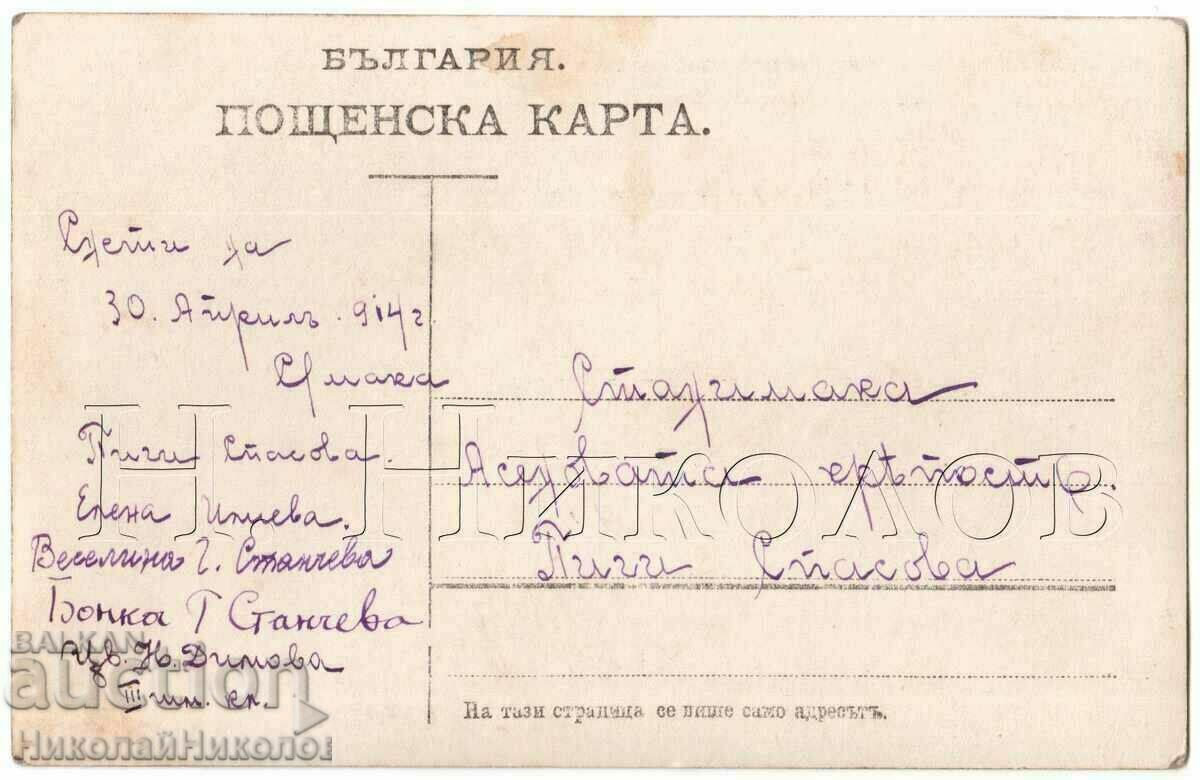 БЪЛГАРИЯ.
ПОЩЕНСКА КАРТА.
30. Априлъ. 914 г
Пиги Спасова.
Елена Илиева.
Веселина Г. Станчева
Бонка Г Станчева
Цв. Н. Димова
III
Станимака
крѣпость.
Пиги Спасова
На тази страница се пише само адресътъ.
Н. НИКОЛОВ
BALKAN
auction
НиколайНиколов